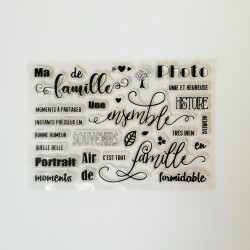 Ma de famille Photo
UNIE ET HEUREUSE
MOMENTS À PARTAGER Une HISTOIRE
INSTANTS PRÉCIEUX EN ensemble
BONNE HUMEUR SOUVENIRS TRÈS BIEN
QUELLE BELLE en
Portrait Air C'EST TOUT famille
moments de formidable